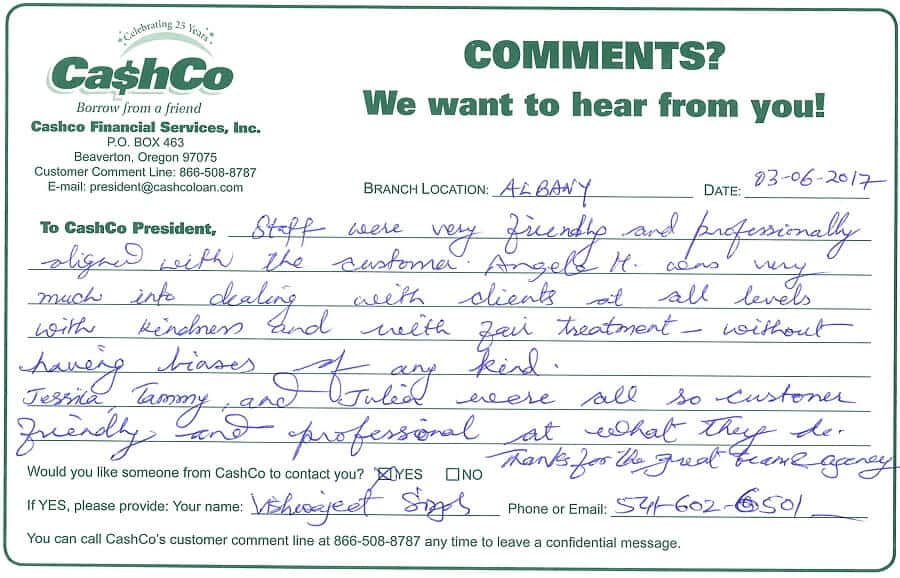 Celebrating 25 Years
Ca$hCo
Borrow from a friend
Cashco Financial Services, Inc.
P.O. BOX 463
Beaverton, Oregon 97075
Customer Comment Line: 866-508-8787
E-mail: president@cashcoloan.com
COMMENTS?
We want to hear from you!
BRANCH LOCATION: ALBANY DATE: 03-06-2017
To CashCo President, Staff were very friendly and professionally
aligned with the customer. Angela M. was very
much into dealing with clients at all levels
with kindness and with fair treatment - without
having biases of any kind.
Jessica, Tammy, and Julia were all so customer
friendly and professional at what they do.
Thanks for the great team & agency
Would you like someone from CashCo to contact you? ☒ YES ☐ NO
If YES, please provide: Your name: Vishwajeet Singh Phone or Email: 541-602-6501
You can call CashCo's customer comment line at 866-508-8787 any time to leave a confidential message.